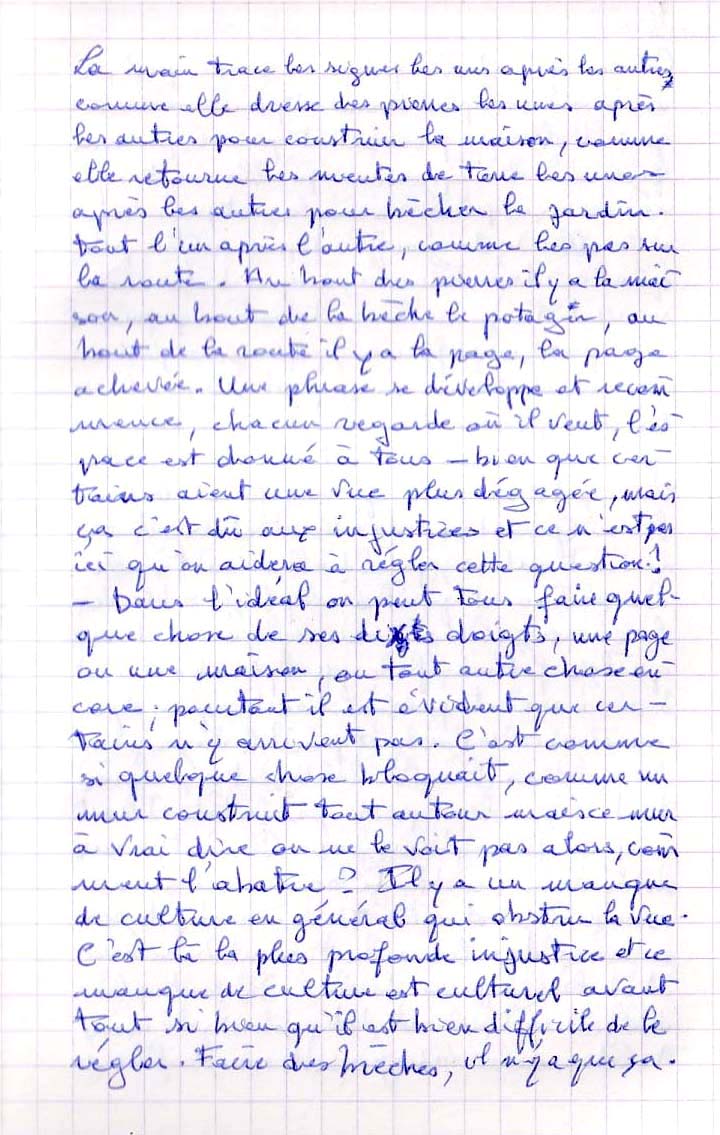 La main trace les signes les uns après les autres,
comme elle dresse des pierres les unes après
les autres pour construire la maison, comme
elle retourne les mentes de terre les unes
après les autres pour bêcher le jardin.
Tout l'un après l'autre, comme les pas sur
la route. Au bout des pierres il y a la mai
son, au bout de la bêche le potager, au
bout de la route il y a la page, la page
achevée. Une phrase se développe et recom
mence, chacun regarde où il veut, l'es
pace est donné à tous – bien que cer
tains aient une vue plus dégagée, mais
ça c'est dû aux injustices et ce n'est pas
ici qu'on aidera à régler cette question !
– Dans l'idéal on peut tous faire quel-
que chose de ses doigts, une page
ou une maison, ou tout autre chose en
core ; pourtant il est évident que cer-
tains n'y arrivent pas. C'est comme
si quelque chose bloquait, comme un
mur construit tout autour mais ce mur
à vrai dire on ne le voit pas alors, com
ment l'abatre ? Il y a un manque
de culture en général qui obstrue la vue.
C'est là la plus profonde injustice et ce
manque de culture est culturel avant
tout si bien qu'il est bien difficile de le
régler. Faire des brèches, il n'y a que ça.